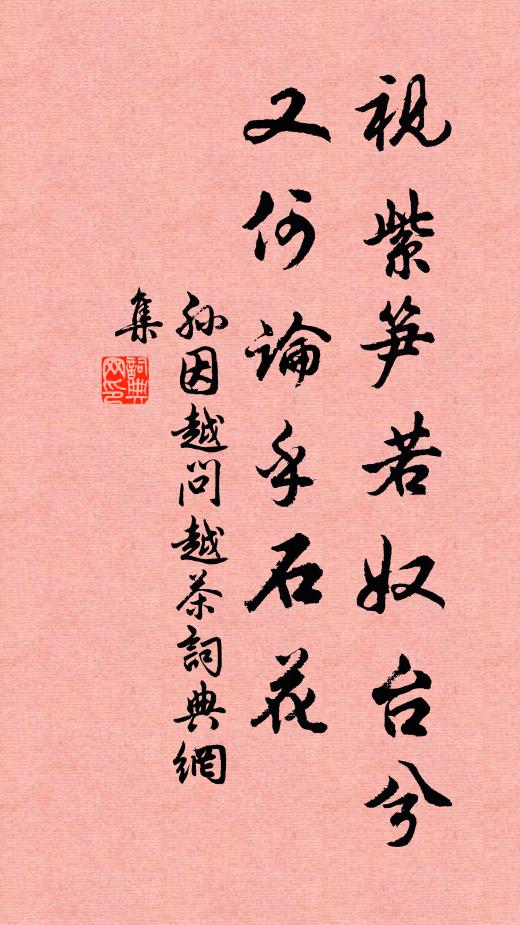 視紫笋若奴台兮
又何論乎石花
孙因越问越茶詞典網
集
詞典
网印